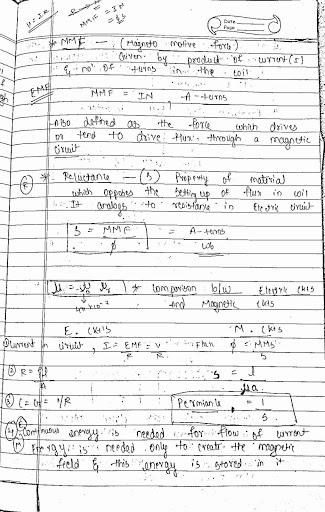 MMF = IN
Date
Page
* MMF - (Magneto motive force)
Given by product of current(s)
& no of turns in the coil
EMF
MMF = IN - A-turns
Also defined as the force which drives
or tend to drive flux through a magnetic
circuit
* Reluctance - (S) Property of material
which opposes the setting up of flux in coil
It analogs to resistance in Electric circuit
S = MMF = A-turns
ϕ wb
* Comparison b/w Electric Ckts
and Magnetic Ckts
E. Ckts M. Ckts
① Current in circuit, I = EMF = V Flux ϕ = MMF
R R S
② R = S = l
μa
③ = 1/R Permiance = 1
S
④ Continuous energy is needed for flow of current
Energy is needed only to create the magnetic
field & this energy is stored in it